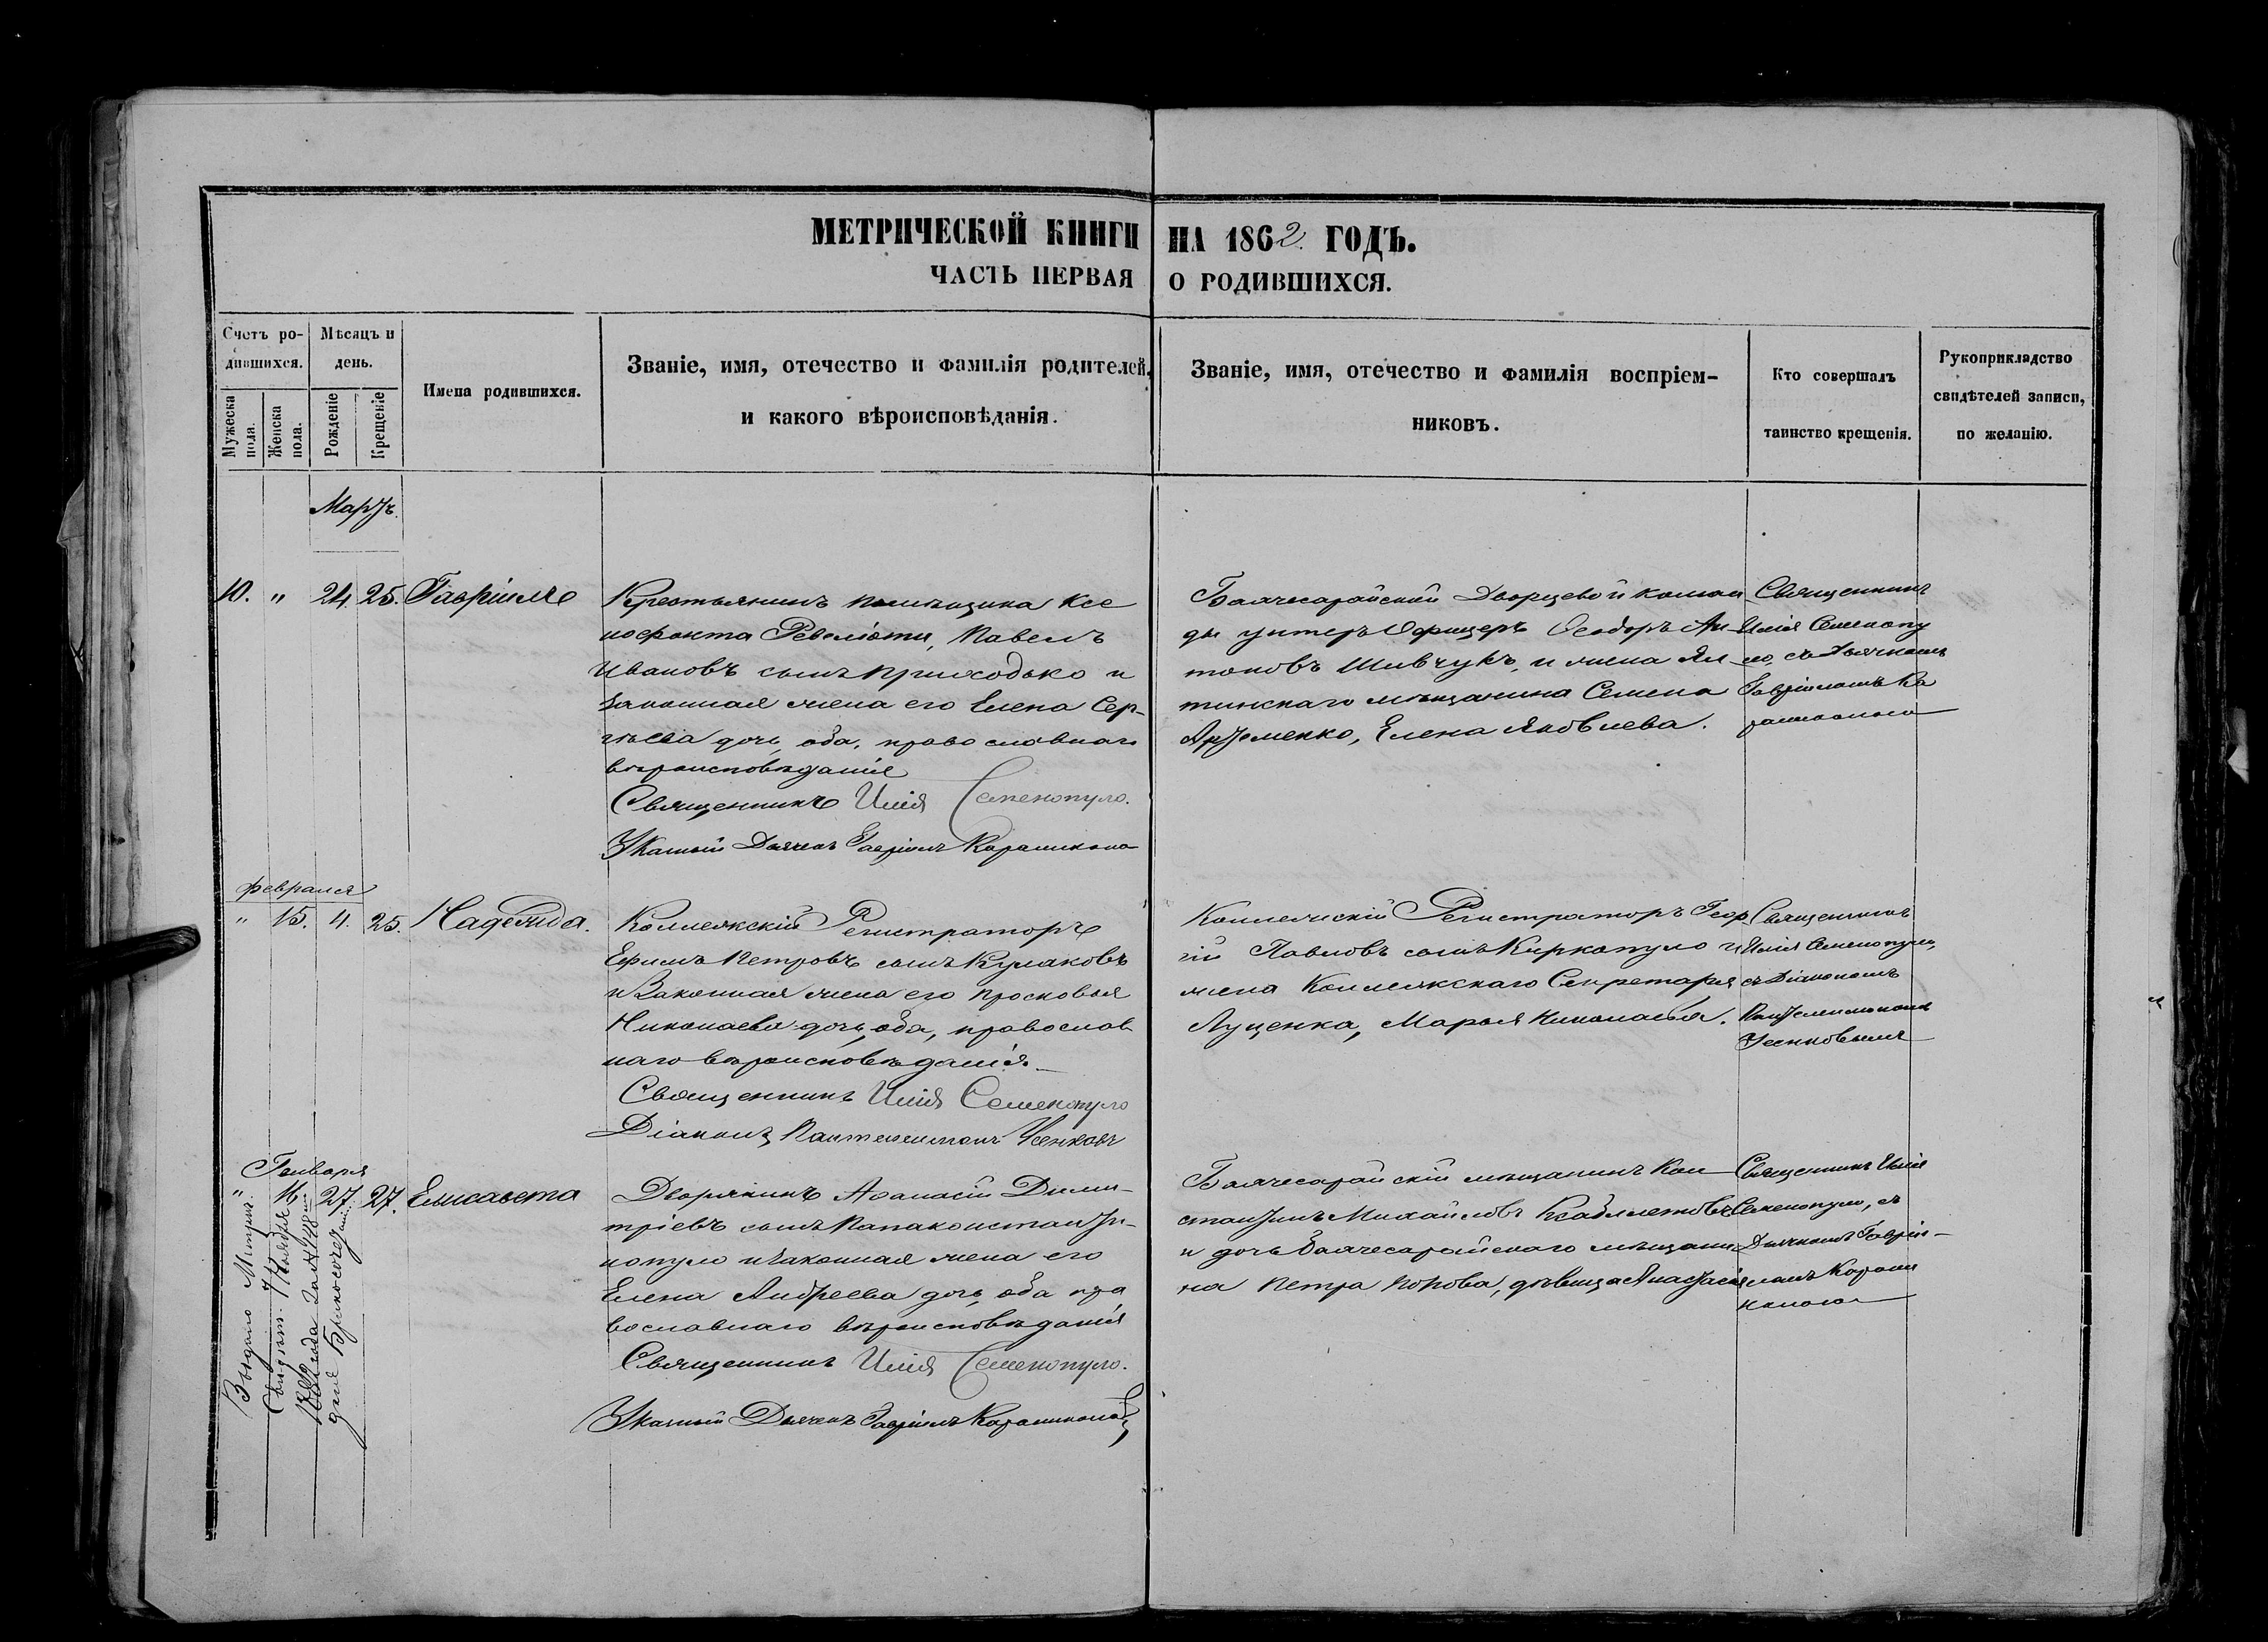 МЕТРИЧЕСКОЙ КНИГИ НА 1862 ГОДЪ.
ЧАСТЬ ПЕРВАЯ О РОДИВШИХСЯ.
Счетъ ро-
дившихся.
Мужеска
пола.
Женска
пола.
Мѣсяцъ и
день.
Рожденіе
Крещеніе
Имена родившихся.
Званіе, имя, отечество и фамилія родителей,
и какого вѣроисповѣданія.
Званіе, имя, отечество и фамилія воспріем-
никовъ.
Кто совершалъ
таинство крещенія.
Рукоприкладство
свидѣтелей записи,
по желанію.
Мартъ
10. " 24. 25. Гавріилъ
Крестьянинъ помѣщика Ксе
нофонта Ревеліоти, Павелъ
Ивановъ сынъ Приходько и
законная жена его Елена Сер-
гѣева дочь, оба, православнаго
вѣроисповѣданія
Священникъ Илія Семенопуло.
Указный Дьячекъ Гавріилъ
Бахчесарайской Дворцевой коман
ды унтеръ Офицеръ Ѳеодоръ Ан
тоновъ Шивчукъ, и жена Ял
тинскаго мѣщанина Семена
Артеменко, Елена Яковлева.
Священникъ
Илія Семенопу
ло, съ Дьячкомъ
Гавріиломъ
Февраля
" 15. 4. 25. Надежда.
Коллежскій Регистраторъ
Ефимъ Петровъ сынъ Кулаковъ
и Законная жена его Просковья
Николаева дочь, оба, православ
наго вѣроисповѣданія
Священникъ Илія Семенопуло
Діаконъ Пантелеимонъ
Коллежскій Регистраторъ Геор
гій Павловъ сынъ Киркопуло и
жена Коллежскаго Секретаря
Луценка, Марья Николаева.
Священникъ
Илія Семенопуло,
съ Діакономъ
Пантелеимономъ
Генваря
" 16. 27. 27. Елисавета
Дворянинъ Аѳанасій Дими-
тріевъ сынъ Папаконстанти-
нопуло и законная жена его
Елена Андреева дочь, оба пра
вославнаго вѣроисповѣданія
Священникъ Илія Семенопуло.
Указный Дьячекъ Гавріилъ
Бахчесарайскій мѣщанинъ Кон
стантинъ Михайловъ
и дочь Бахчесарайскаго мѣщани
на Петра Попова, дѣвица Анастасія
Священникъ Илія
Семенопуло, съ
Дьячкомъ Гаврі-
иломъ
Выдано Метрич.
Свидѣт.